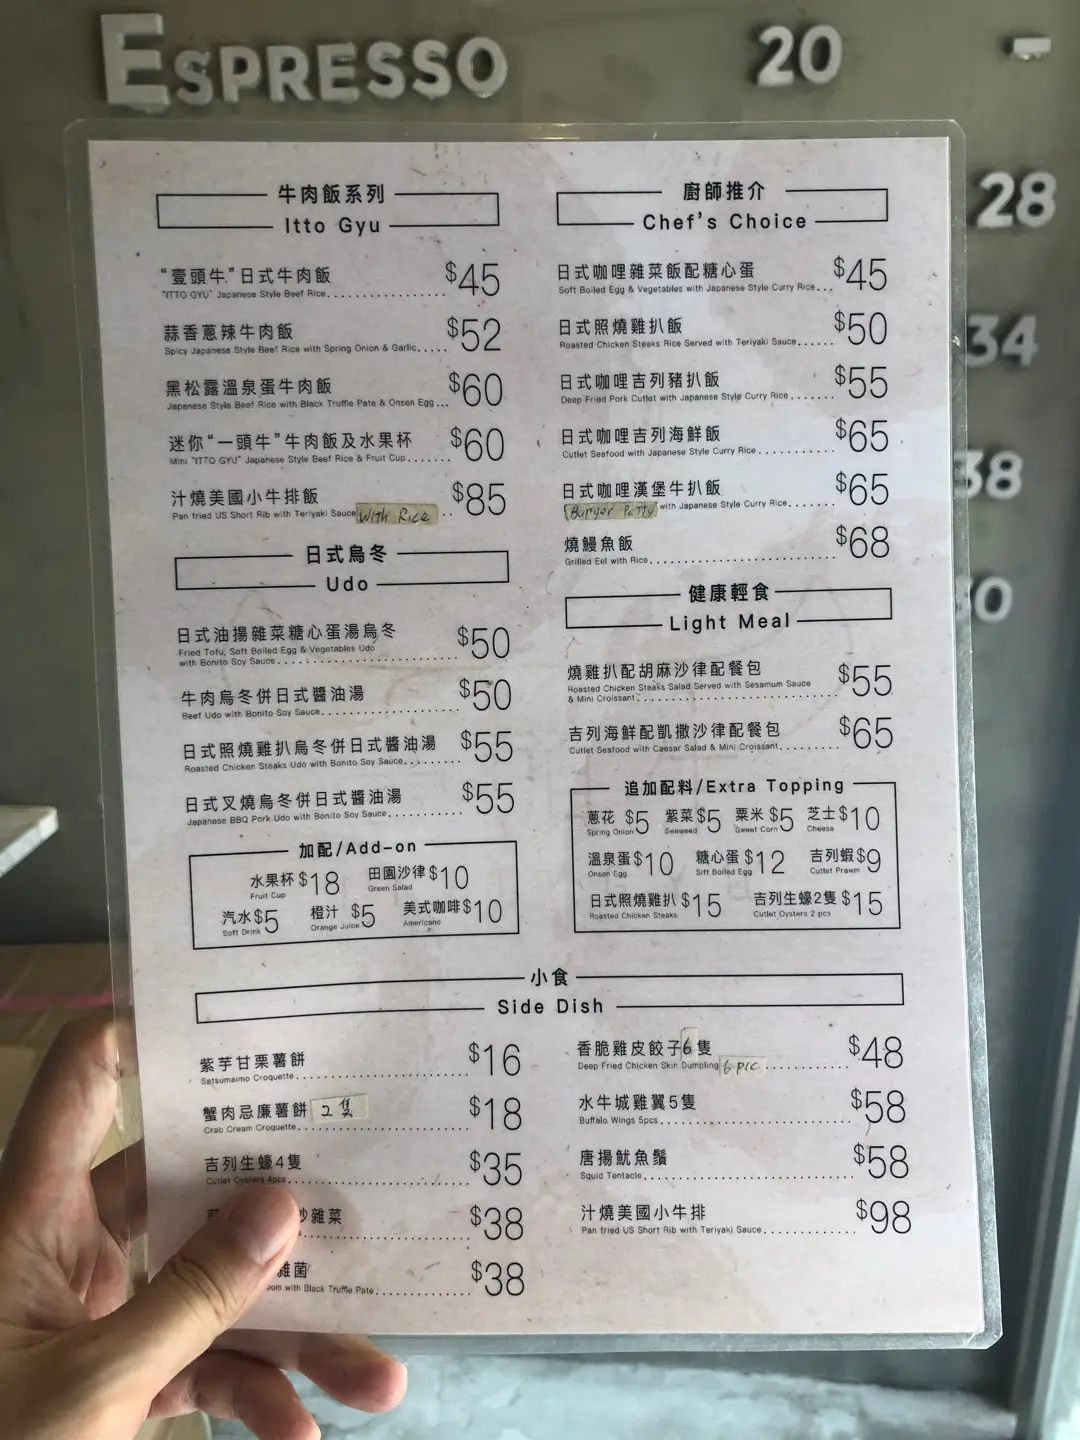 ESPRESSO 20 -
28
34
38
牛肉飯系列
Itto Gyu
“壹頭牛”日式牛肉飯 $45
"ITTO GYU" Japanese Style Beef Rice
蒜香蔥辣牛肉飯 $52
Spicy Japanese Style Beef Rice with Spring Onion & Garlic
黑松露溫泉蛋牛肉飯 $60
Japanese Style Beef Rice with Black Truffle Pate & Onsen Egg
迷你“一頭牛”牛肉飯及水果杯 $60
Mini "ITTO GYU" Japanese Style Beef Rice & Fruit Cup
汁燒美國小牛排飯 $85
Pan fried US Short Rib with Teriyaki Sauce With Rice
日式烏冬
Udo
日式油揚雜菜糖心蛋湯烏冬 $50
Fried Tofu, Soft Boiled Egg & Vegetables Udo
with Bonito Soy Sauce
牛肉烏冬併日式醬油湯 $50
Beef Udo with Bonito Soy Sauce
日式照燒雞扒烏冬併日式醬油湯 $55
Roasted Chicken Steaks Udo with Bonito Soy Sauce
日式叉燒烏冬併日式醬油湯 $55
Japanese BBQ Pork Udo with Bonito Soy Sauce
加配/Add-on
水果杯 $18 田園沙律 $10
Fruit Cup Green Salad
汽水 $5 橙汁 $5 美式咖啡 $10
Soft Drink Orange Juice Americano
廚師推介
Chef's Choice
日式咖哩雜菜飯配糖心蛋 $45
Soft Boiled Egg & Vegetables with Japanese Style Curry Rice
日式照燒雞扒飯 $50
Roasted Chicken Steaks Rice Served with Teriyaki Sauce
日式咖哩吉列豬扒飯 $55
Deep Fried Pork Cutlet with Japanese Style Curry Rice
日式咖哩吉列海鮮飯 $65
Cutlet Seafood with Japanese Style Curry Rice
日式咖哩漢堡牛扒飯 $65
Burger Patty with Japanese Style Curry Rice
燒鰻魚飯 $68
Grilled Eel with Rice
健康輕食
Light Meal
燒雞扒配胡麻沙律配餐包 $55
Roasted Chicken Steaks Salad Served with Sesamum Sauce
& Mini Croissant
吉列海鮮配凱撒沙律配餐包 $65
Cutlet Seafood with Caesar Salad & Mini Croissant
追加配料/Extra Topping
蔥花 $5 紫菜 $5 粟米 $5 芝士 $10
Spring Onion Seaweed Sweet Corn Cheese
溫泉蛋 $10 糖心蛋 $12 吉列蝦 $9
Onsen Egg Sift Boiled Egg Cutlet Prawm
日式照燒雞扒 $15 吉列生蠔2隻 $15
Roasted Chicken Steaks Cutlet Oysters 2 pcs
小食
Side Dish
紫芋甘栗薯餅 $16
Satsumaimo Croquette
蟹肉忌廉薯餅 2隻 $18
Crab Cream Croquette
吉列生蠔4隻 $35
Cutlet Oysters 4pcs
炒雜菜 $38
雜菌 $38
with Black Truffle Pate
香脆雞皮餃子6隻 $48
Deep Fried Chicken Skin Dumpling 6 pic
水牛城雞翼5隻 $58
Buffalo Wings 5pcs
唐揚魷魚鬚 $58
Squid Tentacle
汁燒美國小牛排 $98
Pan fried US Short Rib with Teriyaki Sauce